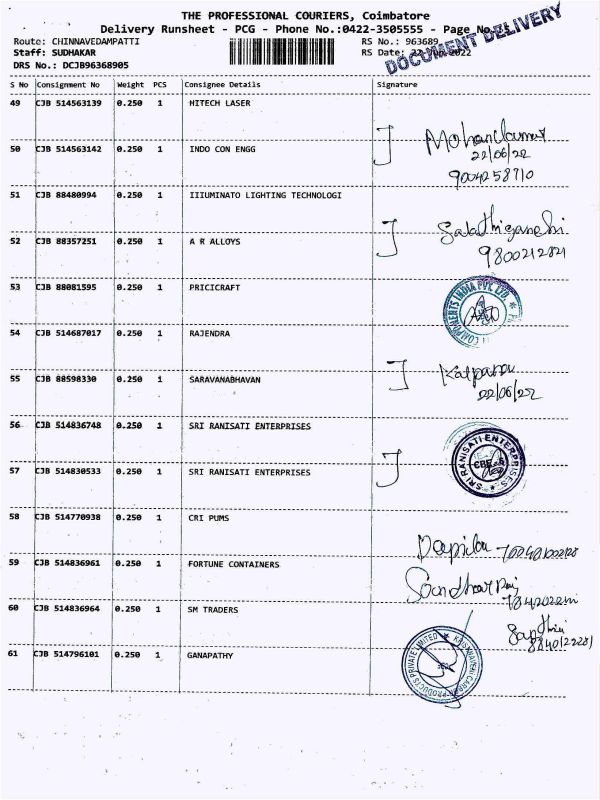 THE PROFESSIONAL COURIERS, Coimbatore
Delivery Runsheet - PCG - Phone No.:0422-3505555 - Page No.
DOCUMENT DELIVERY
Route: CHINNAVEDAMPATTI RS No.: 963689
Staff: SUDHAKAR RS Date: 22-Jun-2022
DRS No.: DCJB96368905
S No Consignment No Weight PCS Consignee Details Signature
49 CJB 514563139 0.250 1 HITECH LASER
50 CJB 514563142 0.250 1 INDO CON ENGG
22/06/22
9004258710
51 CJB 88480994 0.250 1 IIIUMINATO LIGHTING TECHNOLOGI
52 CJB 88357251 0.250 1 A R ALLOYS
9800212821
53 CJB 88081595 0.250 1 PRICICRAFT
COMPONENTS INDIA PVT. LTD.
54 CJB 514687017 0.250 1 RAJENDRA
55 CJB 88598330 0.250 1 SARAVANABHAVAN
Kalpana
22/06/22
56 CJB 514836748 0.250 1 SRI RANISATI ENTERPRISES
SRI RANISATI ENTERPRISES
57 CJB 514830533 0.250 1 SRI RANISATI ENTERPRISES
58 CJB 514770938 0.250 1 CRI PUMS
59 CJB 514836961 0.250 1 FORTUNE CONTAINERS
60 CJB 514836964 0.250 1 SM TRADERS
61 CJB 514796101 0.250 1 GANAPATHY
PRODUCTS PRIVATE LIMITED